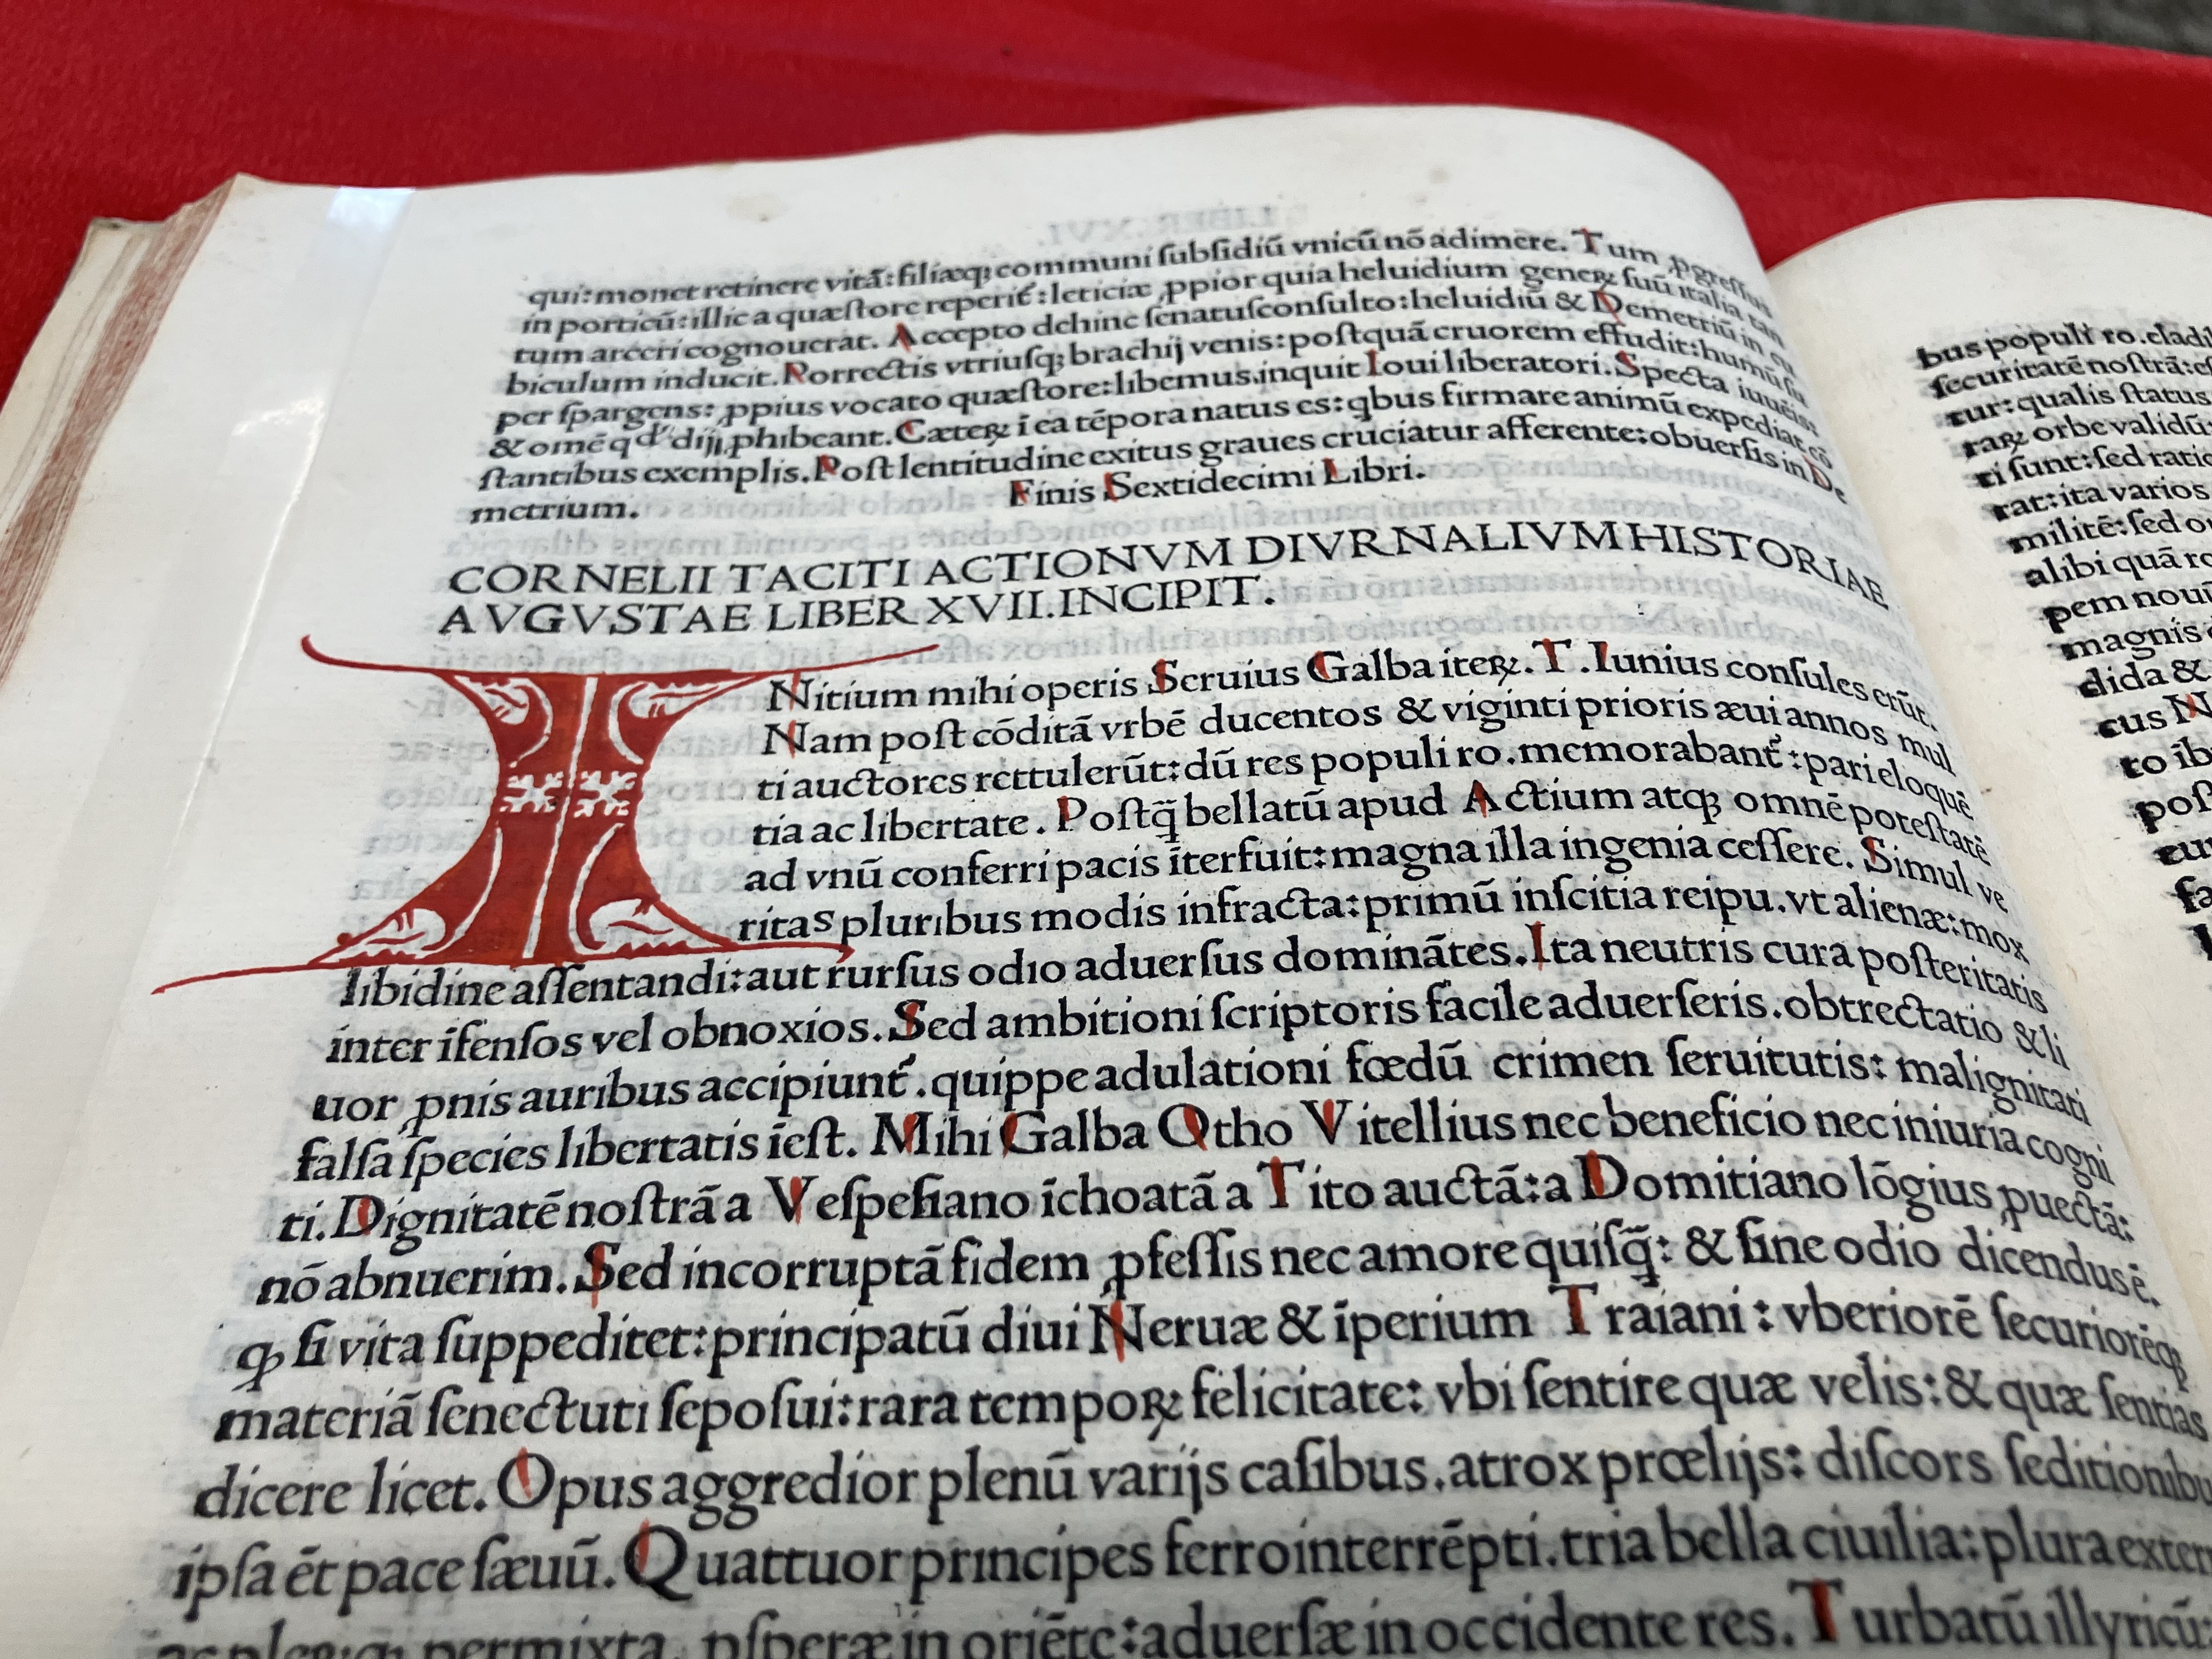 qui: monet retinere vitã: filiæqꝫ communi ſubſidiũ vnicũ nõ adimere. Tum ꝓgreſſus
in porticũ: illic a quæſtore reperit᷑: leticiæ ꝓpior quia heluidium generꝝ ſuũ italia tan
tum arceri cognouerat. Accepto dehinc ſenatuſconſulto: heluidiũ & Demetriũ in cu
biculum inducit. Porrectis vtriuſqꝫ brachij venis: poſtquã cruorem effudit: humũ ſu
per ſpargens: ꝓpius vocato quæſtore: libemus. inquit Ioui liberatori. Specta iuuẽis:
& omẽ qd᷑ dij ꝓhibeant. Cæterꝝ ĩ ea tẽpora natus es: qbus firmare animũ expediat cõ
ſtantibus exemplis. Poſt lentitudine exitus graues cruciatur afferente: obuerſis in De
metrium.
Finis Sextidecimi Libri.
CORNELII TACITI ACTIONVM DIVRNALIVM HISTORIAE
AVGVSTAE LIBER XVII. INCIPIT.
INitium mihi operis Seruius Galba iterꝝ. T. Iunius conſules erũt.
Nam poſt cõditã vrbẽ ducentos & viginti prioris æui annos mul
ti auctores rettulerũt: dũ res populi ro. memorabant᷑: pari eloquẽ
tia ac libertate. Poſtq̃ bellatũ apud Actium atqꝫ omnẽ poteſtatẽ
ad vnũ conferri pacis ĩterfuit: magna illa ingenia ceſſere. Simul ve
ritas pluribus modis infracta: primũ inſcitia reipu. vt alienæ: mox
libidine aſſentandi: aut rurſus odio aduerſus dominãtes. Ita neutris cura poſteritatis
inter ĩfenſos vel obnoxios. Sed ambitioni ſcriptoris facile aduerſeris. obtrectatio & li
uor ꝓnis auribus accipiunt᷑. quippe adulationi fœdũ crimen ſeruitutis: malignitati
falſa ſpecies libertatis ĩeſt. Mihi Galba Otho Vitellius nec beneficio nec iniuria cogni
ti. Dignitatẽ noſtrã a Veſpeſiano ĩchoatã a Tito auctã: a Domitiano lõgius ꝓuectã:
nõ abnuerim. Sed incorruptã fidem ꝓfeſſis nec amore quiſq̃: & ſine odio dicendus ẽ.
ꝙ ſi vita ſuppeditet: principatũ diui Neruæ & ĩperium Traiani: vberiorẽ ſecuriorẽqꝫ
materiã ſenectuti ſepoſui: rara temporꝝ felicitate: vbi ſentire quæ velis: & quæ ſentias
dicere licet. Opus aggredior plenũ varijs caſibus. atrox prœlijs: diſcors ſeditionibu
ipſa ẽt pace ſæuũ. Quattuor principes ferro interrẽpti. tria bella ciuilia: plura extern
permixta. ꝓſperæ in oriẽte: aduerſæ in occidente res. Turbatũ illyricũ:
bus populi ro. cladi
ſecuritatẽ noſtrã: eſ
tur: qualis ſtatus
raꝝ orbe validũ:
ti ſunt: ſed ratio
rat: ita varios
militẽ: ſed o
alibi quã ro
pem noui
magnis
dida &
cus N
to ib
poſ
eur
fa